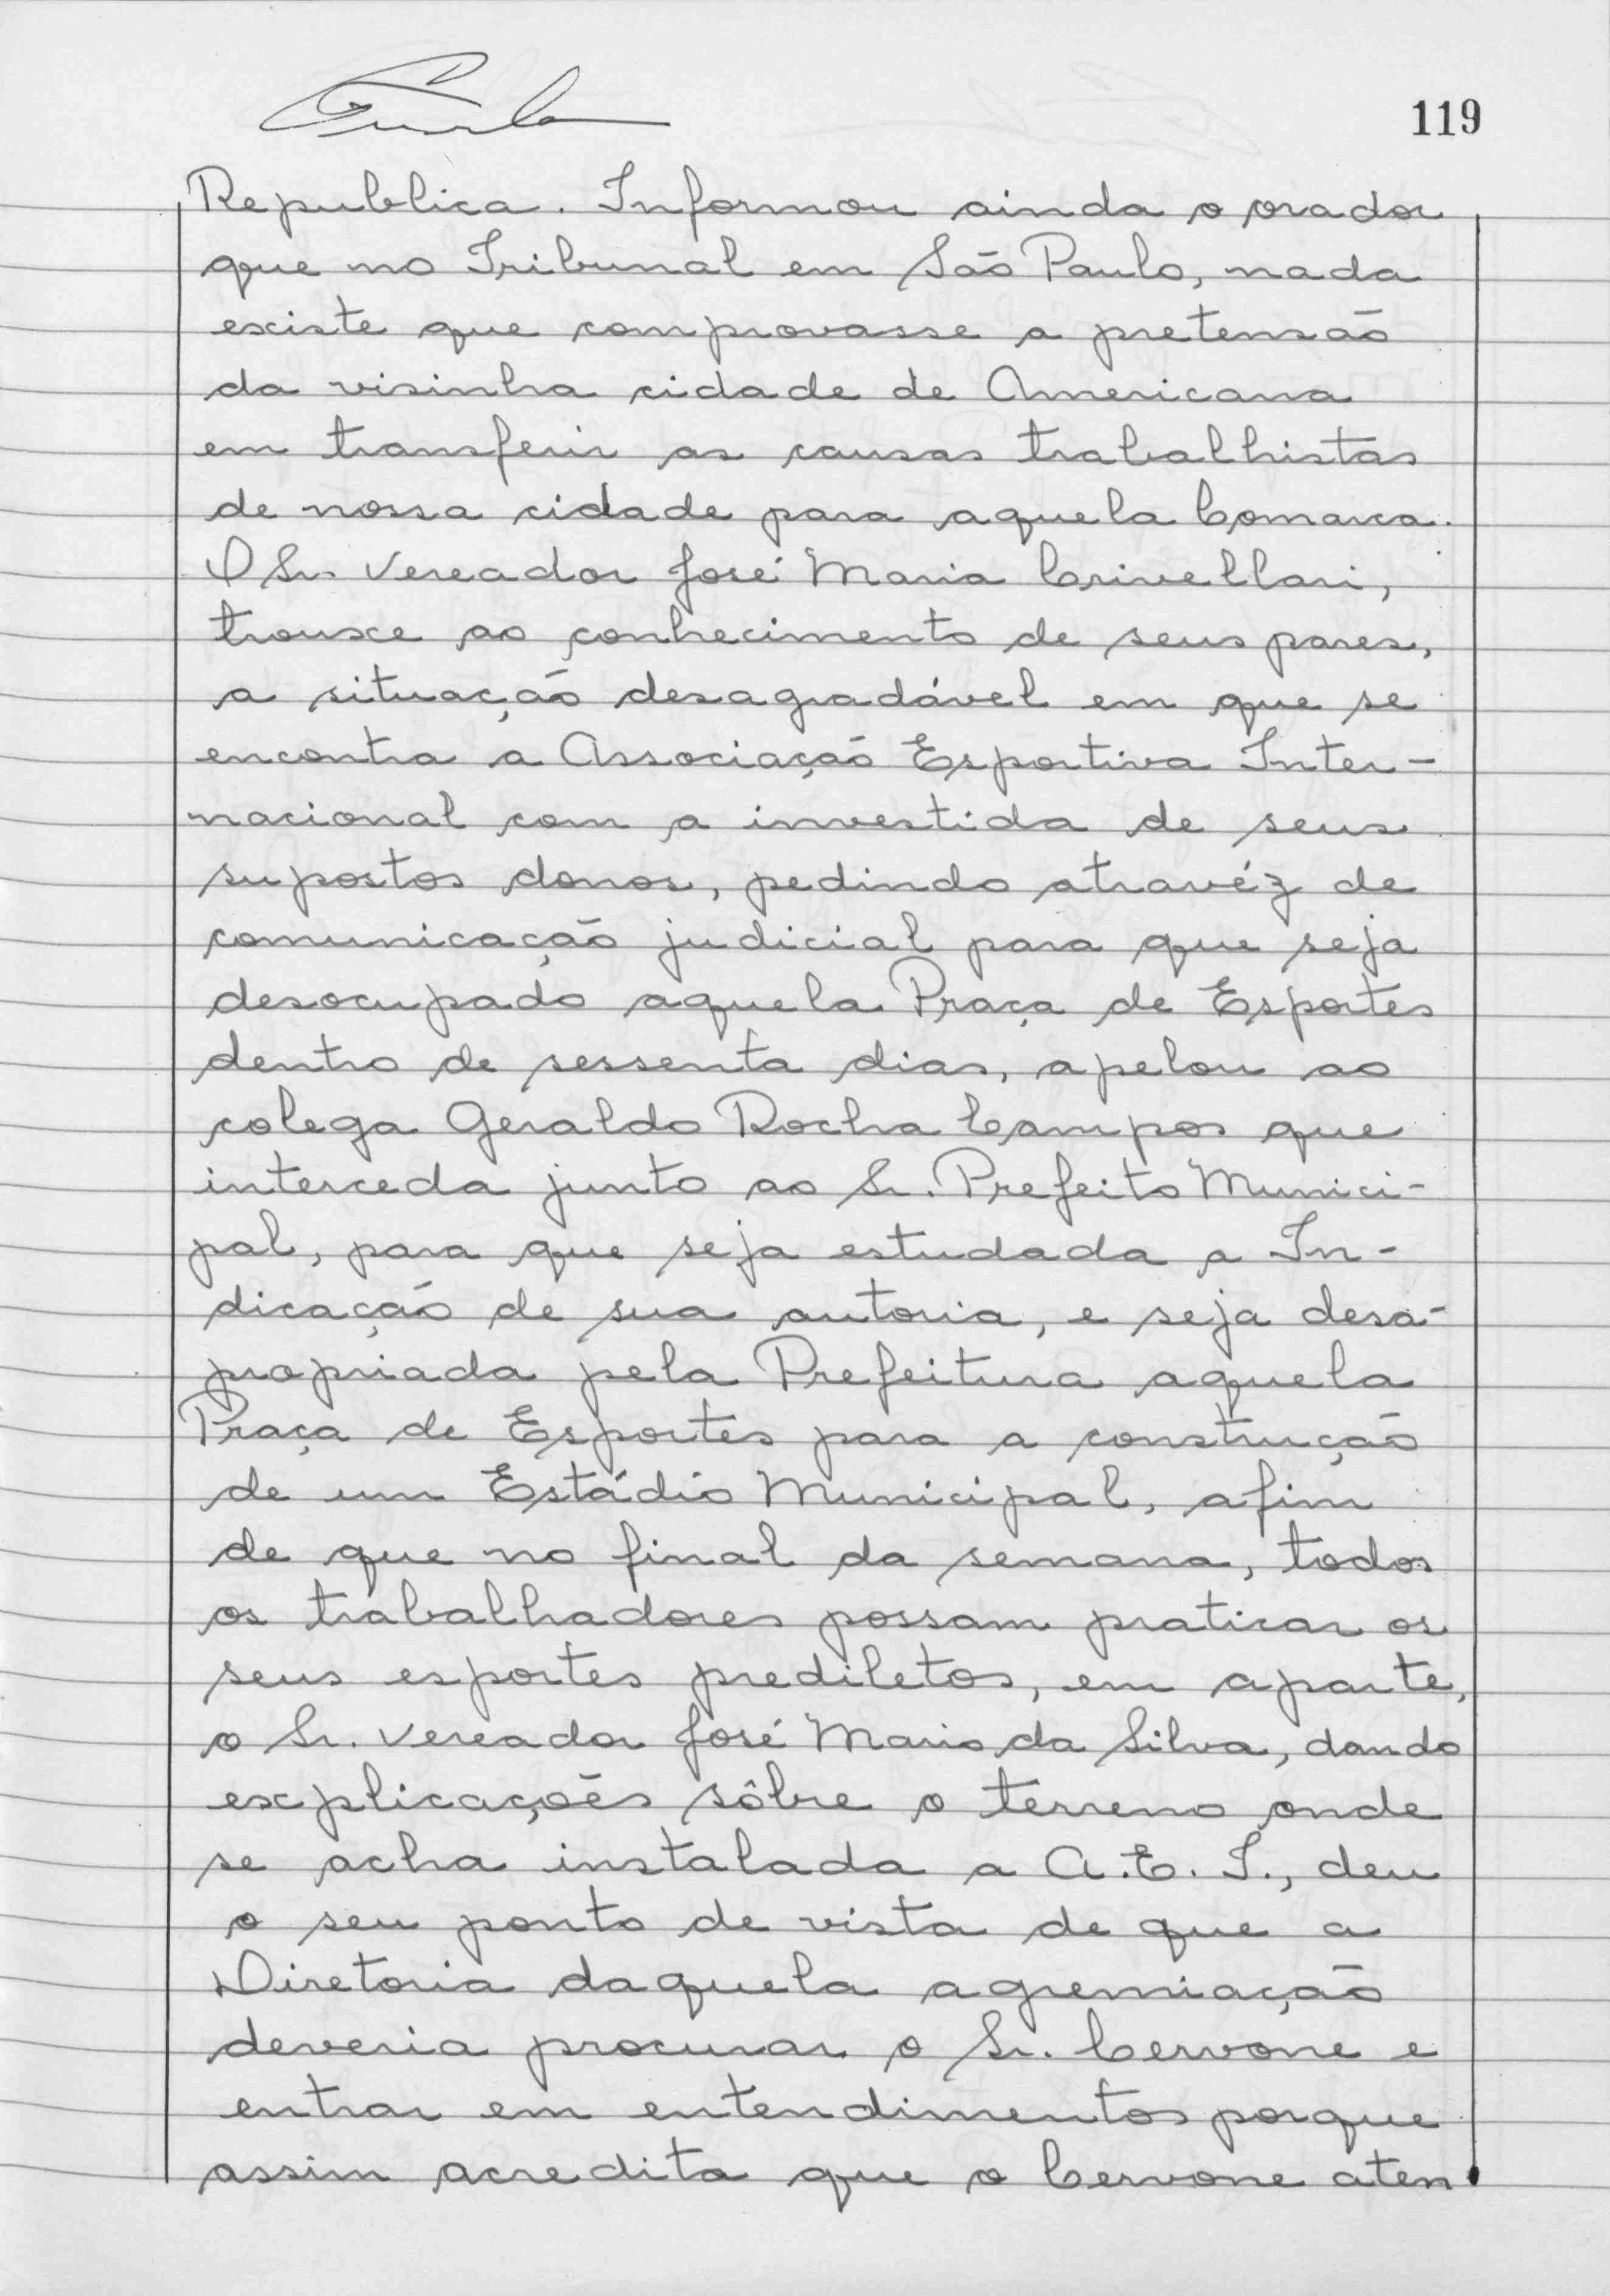 119
Republica. Informou ainda o orador
que no Tribunal em São Paulo, nada
existe que comprovasse a pretensão
da visinha cidade de Americana
em transferir as causas trabalhistas
de nossa cidade para aquela Comarca.
O Sr. Vereador José Maria Crivellari,
trouxe ao conhecimento de seus pares,
a situação desagradável em que se
encontra a Associação Esportiva Inter-
nacional com a investida de seus
supostos donos, pedindo atravéz de
comunicação judicial para que seja
desocupado aquela Praça de Esportes
dentro de sessenta dias, apelou ao
colega Geraldo Rocha Campos que
interceda junto ao Sr. Prefeito Munici-
pal, para que seja estudada a In-
dicação de sua autoria, e seja desa-
propriada pela Prefeitura aquela
Praça de Esportes para a construção
de um Estádio Municipal, afim
de que no final da semana, todos
os trabalhadores possam praticar os
seus esportes prediletos, em aparte,
o Sr. Vereador José Mario da Silva, dando
explicações sôbre o terreno onde
se acha instalada a A.E.I., deu
o seu ponto de vista de que a
Diretoria daquela agremiação
deveria procurar o Sr. Cervone e
entrar em entendimentos porque
assim acredita que o Cervone aten